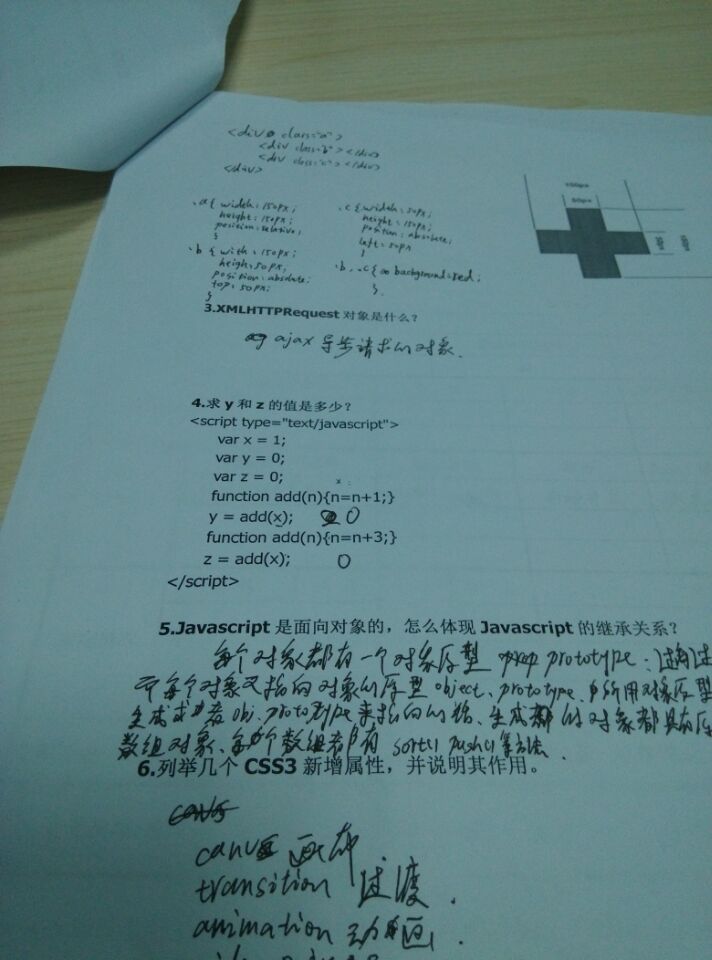 <div class="a">
<div class="b"></div>
<div class="c"></div>
</div>
.a{ width:150px;
height:150px;
position:relative;
}
.b { with:150px;
heigh:50px;
position:absolute;
top:50px;
}
.c {width:50px;
height:150px;
position:absolute;
left:50px
}
.b .c{ background:red;
}
150px
50px
3.XMLHTTPRequest 对象是什么?
ajax 异步请求的对象.
4.求 y 和 z 的值是多少?
<script type="text/javascript">
var x = 1;
var y = 0;
var z = 0;
function add(n){n=n+1;}
y = add(x); 0
function add(n){n=n+3;}
z = add(x); 0
</script>
5.Javascript 是面向对象的,怎么体现 Javascript 的继承关系?
每个对象都有一个对象原型 prototype
每个对象又指向对象的原型 object.prototype 所用对象原型
生成 obj.prototype 来指向 生成 的对象都具有原
数组对象、每个数组都有 sort() push()等方法.
6.列举几个 CSS3 新增属性,并说明其作用。
canv 画布
transition 过渡.
animation 动画.